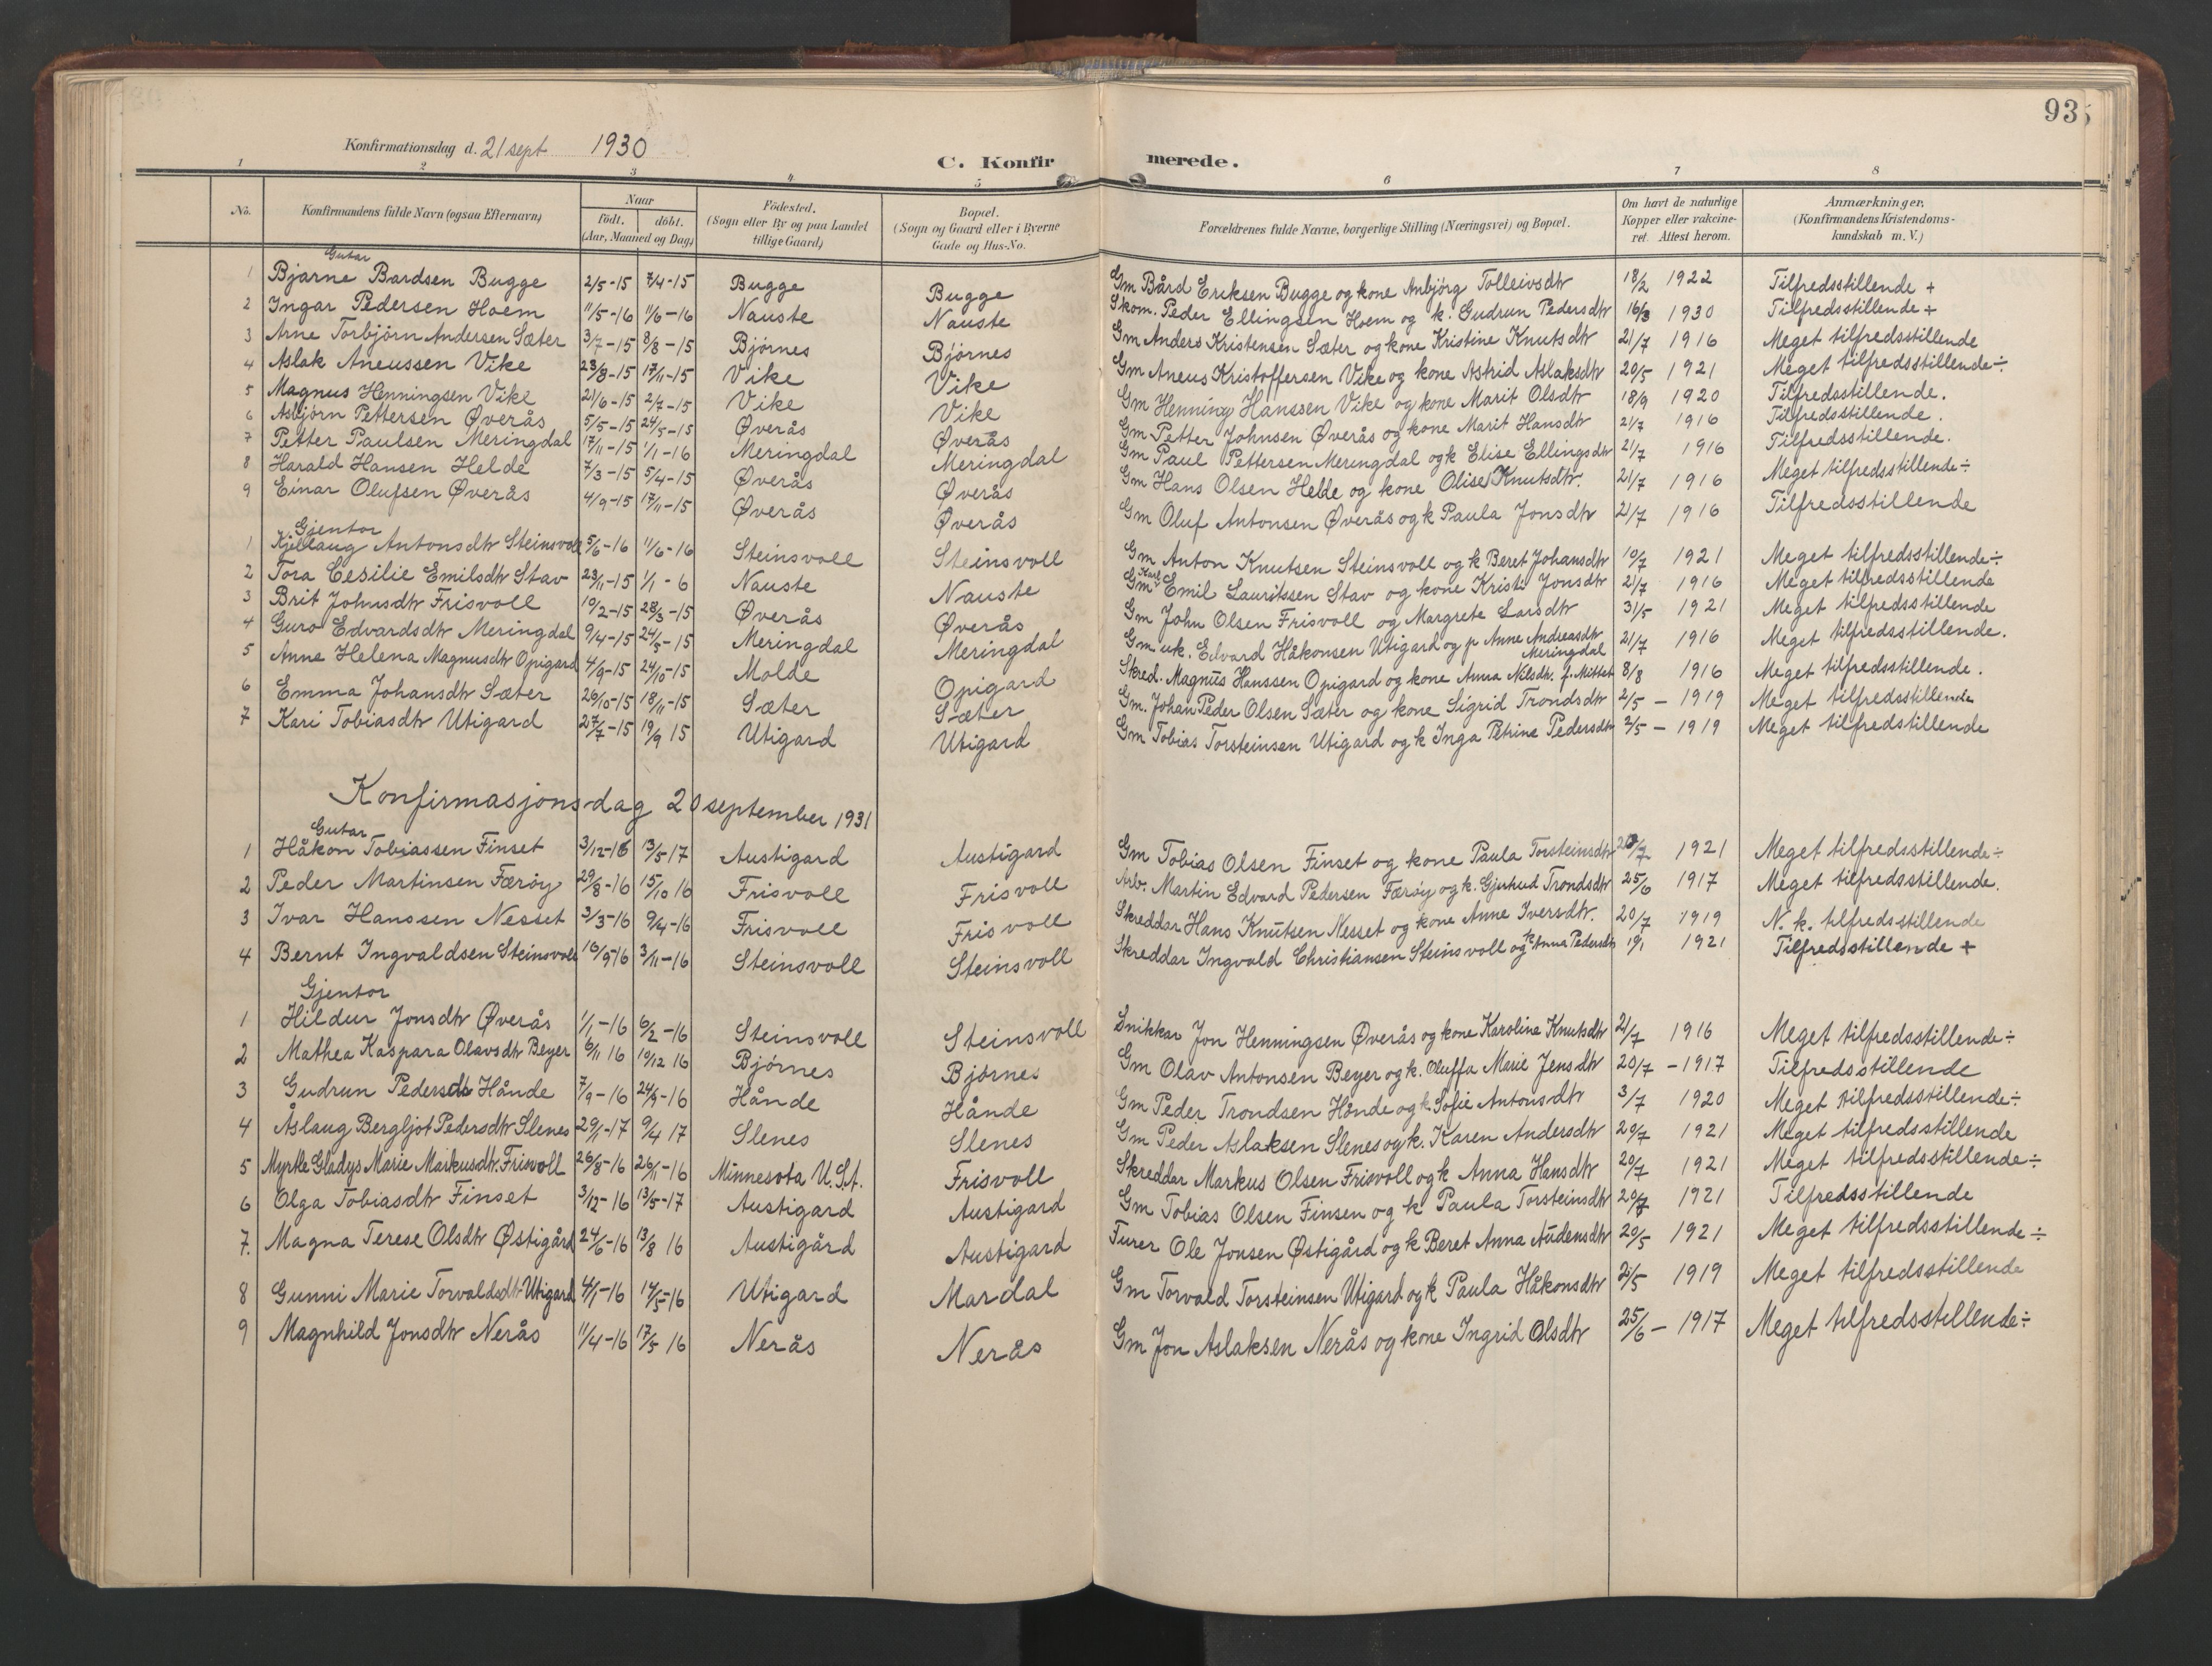 93
Konfirmationsdag d. 21 sept 1930
C. Konfirmerede.
1 2 3 4 5 6 7 8
No. Konfirmandens fulde Navn (ogsaa Efternavn) Naar födt. döbt. (Aar, Maaned og Dag) Födested. (Sogn eller By og paa Landet tillige Gaard) Bopæl. (Sogn og Gaard eller i Byerne Gade og Hus-No. Forældrenes fulde Navne, borgerlige Stilling (Næringsvei) og Bopæl. Om havt de naturlige Kopper eller vakcineret. Attest herom. Anmærkninger, (Konfirmandens Kristendomskundskab m. V.)
Gutar
1 Bjarne Bardsen Bugge 2/5-15 7/4-15 Bugge Bugge Gm Bård Eriksen Bugge og kone Anbjörg Tolleivsdtr 18/2 1922 Tilfredsstillende +
2 Ingar Pedersen Hoem 11/5-16 11/6-16 Nauste Nauste Skom. Peder Ellingsen Hoem og k. Gudrun Pedersdtr 16/3 1930 Tilfredsstillende +
3 Arne Torbjörn Andersen Sæter 3/7-15 8/8-15 Björnes Björnes Gm Anders Kristensen Sæter og kone Kristine Knutsdtr 21/7 1916 Meget tilfredsstillende
4 Aslak Aneussen Vike 23/8-15 17/11-15 Vike Vike Gm Aneus Kristoffersen Vike og kone Astrid Aslaksdtr 20/5 1921 Meget tilfredsstillende ÷
5 Magnus Henningsen Vike 21/6-15 2/7-15 Vike Vike Gm Henning Hanssen Vike og kone Marit Olsdtr 18/9 1920 Tilfredsstillende.
6 Asbjörn Pettersen Øverås 5/5-15 24/5-15 Øverås Øverås Gm Petter Johnsen Øverås og kone Marit Hansdtr 21/7 1916 Tilfredsstillende.
7 Petter Paulsen Meringdal 17/11-15 1/1-16 Meringdal Meringdal Gm Paul Pettersen Meringdal og k Elise Ellingsdtr 21/7 1916 Tilfredsstillende.
8 Harald Hansen Helde 7/3-15 5/4-15 Øverås Øverås Gm Hans Olsen Helde og kone Olise Knutsdtr. 21/7 1916 Meget tilfredsstillende ÷
9 Einar Olufsen Øverås 4/9-15 17/11-15 Øverås Øverås Gm Oluf Antonsen Øverås og k Paula Jonsdtr 21/7 1916 Tilfredsstillende
Gjentor
1 Kjellaug Antonsdtr Steinsvoll 5/6-16 11/6-16 Steinsvoll Steinsvoll Gm Anton Knutsen Steinsvoll og k Beret Johansdtr 10/7 1921 Meget tilfredsstillende ÷
2 Tora Cesilie Emilsdtr Stav 23/11-15 1/1-6 Nauste Nauste Gm Karl Emil Lauritssen Stav og kone Kristi Jonsdtr 21/7 1916 Meget tilfredsstillende
3 Brit Johnsdtr Frisvoll 10/2-15 28/3-15 Øverås Øverås Gm John Olsen Frisvoll og Margrete Larsdtr 31/5 1921 Meget tilfredsstillende
4 Guro Edvardsdtr Meringdal 9/4-15 24/5-15 Meringdal Meringdal Gm uk. Edvard Håkonsen Utigard og p Anne Andreasdtr Meringdal 21/7 1916 Meget tilfredsstillende.
5 Anne Helena Magnusdtr Opigard 4/9-15 24/10-15 Molde Opigard Skred. Magnus Hanssen Opigard og kone Anna Nilsdtr. f. Mittet 8/8 1916 Meget tilfredsstillende.
6 Emma Johansdtr Sæter 26/10-15 18/11-15 Sæter Sæter Gm. Johan Peder Olsen Sæter og kone Sigrid Trondsdtr 2/5 - 1919 Meget tilfredsstillende
7 Kari Tobiasdtr Utigard 27/7-15 19/9 15 Utigard Utigard Gm Tobias Torsteinsen Utigard og k Inga Petrine Pedersdtr 2/5 - 1919 Meget tilfredstillende
Konfirmasjonsdag 20 september 1931
Gutar
1 Håkon Tobiassen Finset 3/12-16 13/5-17 Austigard Austigard Gm Tobias Olsen Finset og kone Paula Torsteinsdtr 20/7 1921 Meget tilfredsstillende ÷
2 Peder Martinsen Færöy 29/8-16 15/10 16 Frisvoll Frisvoll Arb. Martin Edvard Pedersen Færöy og k. Gjuhud Trondsdtr 25/6 1917 Meget tilfredsstillende.
3 Ivar Hanssen Nesset 3/3-16 9/4-16 Frisvoll Frisvoll Skreddar Hans Knutsen Nesset og kone Anne Iversdtr. 20/7 1919 N. k. tilfredsstillende
4 Bernt Ingvaldsen Steinsvoll 16/9-16 3/11-16 Steinsvoll Steinsvoll Skreddar Ingvald Christiansen Steinsvoll og k Anna Pedersdtr 19/1 1921 Tilfredsstillende +
Gjentor
1 Hildur Jonsdtr Øverås 1/1-16 6/2-16 Steinsvoll Steinsvoll Snikkar Jon Henningsen Øverås og kone Karoline Knutsdtr 21/7 1916 Meget tilfredsstillende ÷
2 Mathea Kaspara Olavsdtr Beyer 6/11 16 10/12 16 Björnes Björnes Gm Olav Antonsen Beyer og k. Oluffa Marie Jensdtr 20/7 - 1917 Tilfredsstillende
3 Gudrun Pedersdtr Hånde 7/9-16 24/9-16 Hånde Hånde Gm Peder Trondsen Hånde og k. Sofie Antonsdtr 3/7 1920 Meget tilfredsstillende ÷
4 Åslaug Bergljot Pedersdtr Slenes 29/1-17 9/4 17 Slenes Slenes Gm Peder Aslaksen Slenes og k. Karen Andersdtr 20/7 1921 Meget tilfredsstillende
5 Myrtle Gladys Marie Markusdtr. Frisvoll 26/8-16 26/11-16 Minnesota U.S.A. Frisvoll Skreddar Markus Olsen Frisvoll og k Anna Hansdtr 20/7 1921 Meget tilfredsstillende ÷
6 Olga Tobiasdtr Finset 3/12-16 13/5-17 Austigard Austigard Gm Tobias Olsen Finsen og k Paula Torsteinsdtr 20/7 1921 Tilfredsstillende
7. Magna Terese Olsdtr Østigård 24/6-16 13/8 16 Austigård Austigard Furer Ole Jonsen Østigård og k Beret Anna Audensdtr 20/5 1921 Meget tilfredsstillende ÷
8 Gunni Marie Torvaldsdtr Utigard 4/1-16 14/5-16 Utigard Mardal Gm Torvald Torsteinsen Utigard og k Paula Håkonsdtr 2/5 1919 Meget tilfredsstillende
9 Magnhild Jonsdtr Nerås 11/4-16 17/5 16 Nerås Nerås Gm Jon Aslaksen Nerås og kone Ingrid Olsdtr 25/6 - 1917 Meget tilfredsstillende ÷